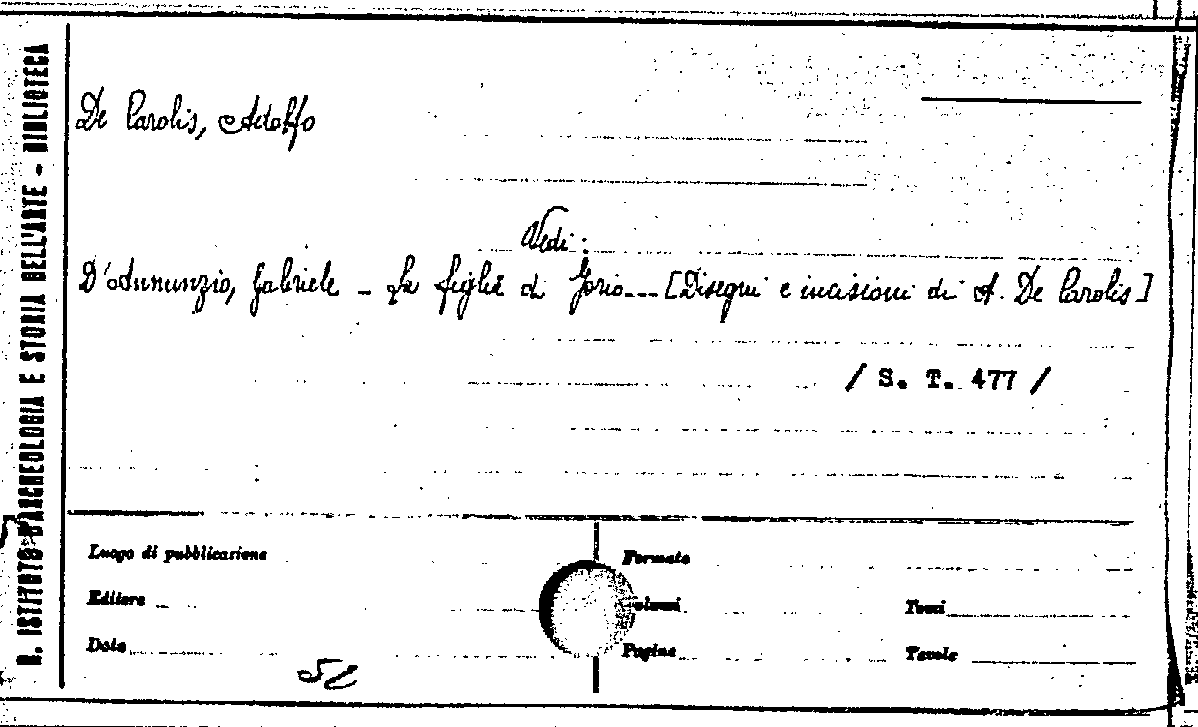 R. ISTITUTO D'ARCHEOLOGIA E STORIA DELL'ARTE - BIBLIOTECA
De Carolis, Adolfo
Vedi:
D'Annunzio, Gabriele - La figlia di Jorio... [Disegni e incisioni di A. De Carolis]
/ S. T. 477 /
Luogo di pubblicazione
Formato
Editore
Volumi
Tomi
Data
Pagine
Tavole